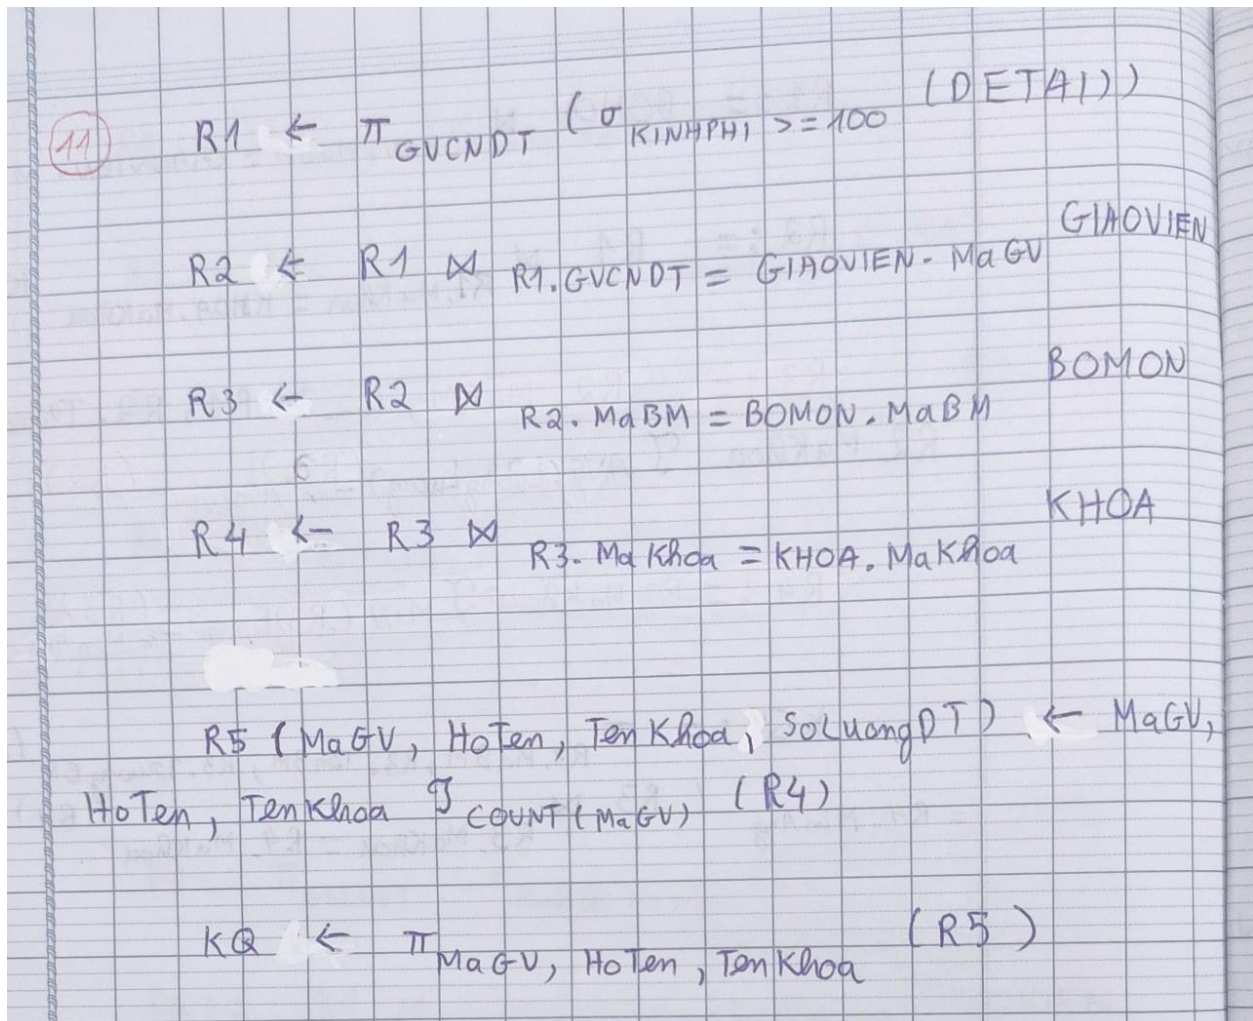 11 R1 ← π GVCNDT (σ KINHPHI >= 100 (DETAI))
R2 ← R1 ⋈ R1.GVCNDT = GIAOVIEN.MaGV GIAOVIEN
R3 ← R2 ⋈ R2.MaBM = BOMON.MaBM BOMON
R4 ← R3 ⋈ R3.MaKhoa = KHOA.MaKhoa KHOA
R5 (MaGV, HoTen, TenKhoa, SoLuongDT) ← MaGV,
HoTen, TenKhoa ℑ COUNT(MaGV) (R4)
KQ ← π MaGV, HoTen, TenKhoa (R5)